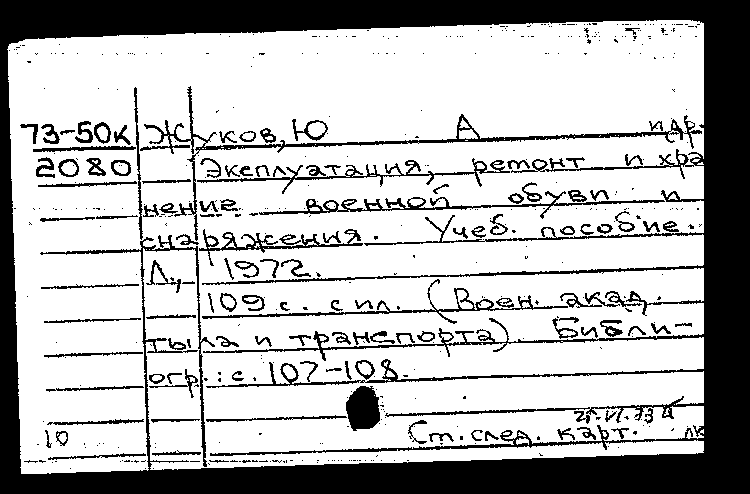 73-50к Жуков, Ю А и др.
2080 Эксплуатация, ремонт и хра
нение военной обуви и
снаряжения. Учеб. пособие.
Л., 1972.
109 с. с ил. (Воен. акад.
тыла и транспорта). Библи-
огр.: с. 107-108.
10 Ст. след. карт.